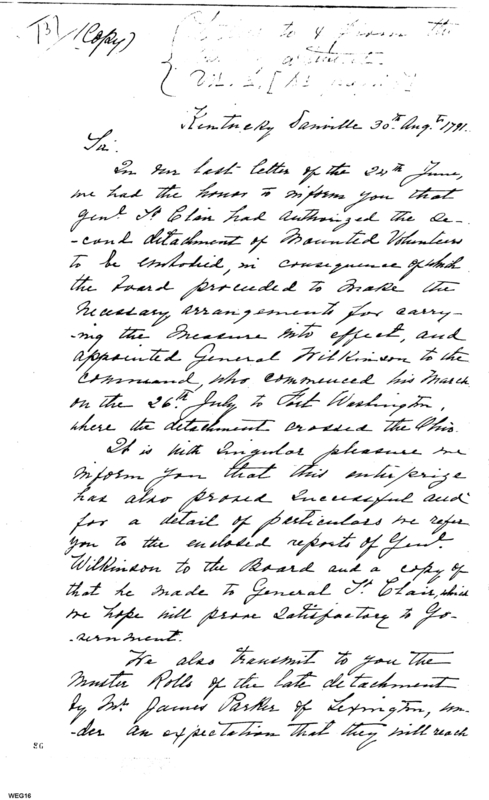 [B] (Copy)
to & from the
Kentucky Danville 30th Augt 1791.
Sir.
In our last letter of the 24th June,
we had the honor to inform you that
Genl. St Clair had authorized the se-
-cond detachment of Mounted Volunteers
to be embodied, in consequence of which
the board proceeded to make the
necessary arrangements for carry-
-ing the measure into effect, and
appointed General Wilkinson to the
command, who commenced his march
on the 26th. July to Fort Washington,
where the detachment crossed the Ohio.
It is with singular pleasure we
inform you that this enterprize
has also proved successful and
for a detail of particulars we refer
you to the enclosed reports of Genl.
Wilkinson to the Board and a copy of
that he made to General St. Clair, which
we hope will prove satisfactory to Go-
-vernment.
We also transmit to you the
Muster Rolls of the late detachment
by Mr. James Parker of Lexington, un-
-der an expectation that they will reach
86
WEG16